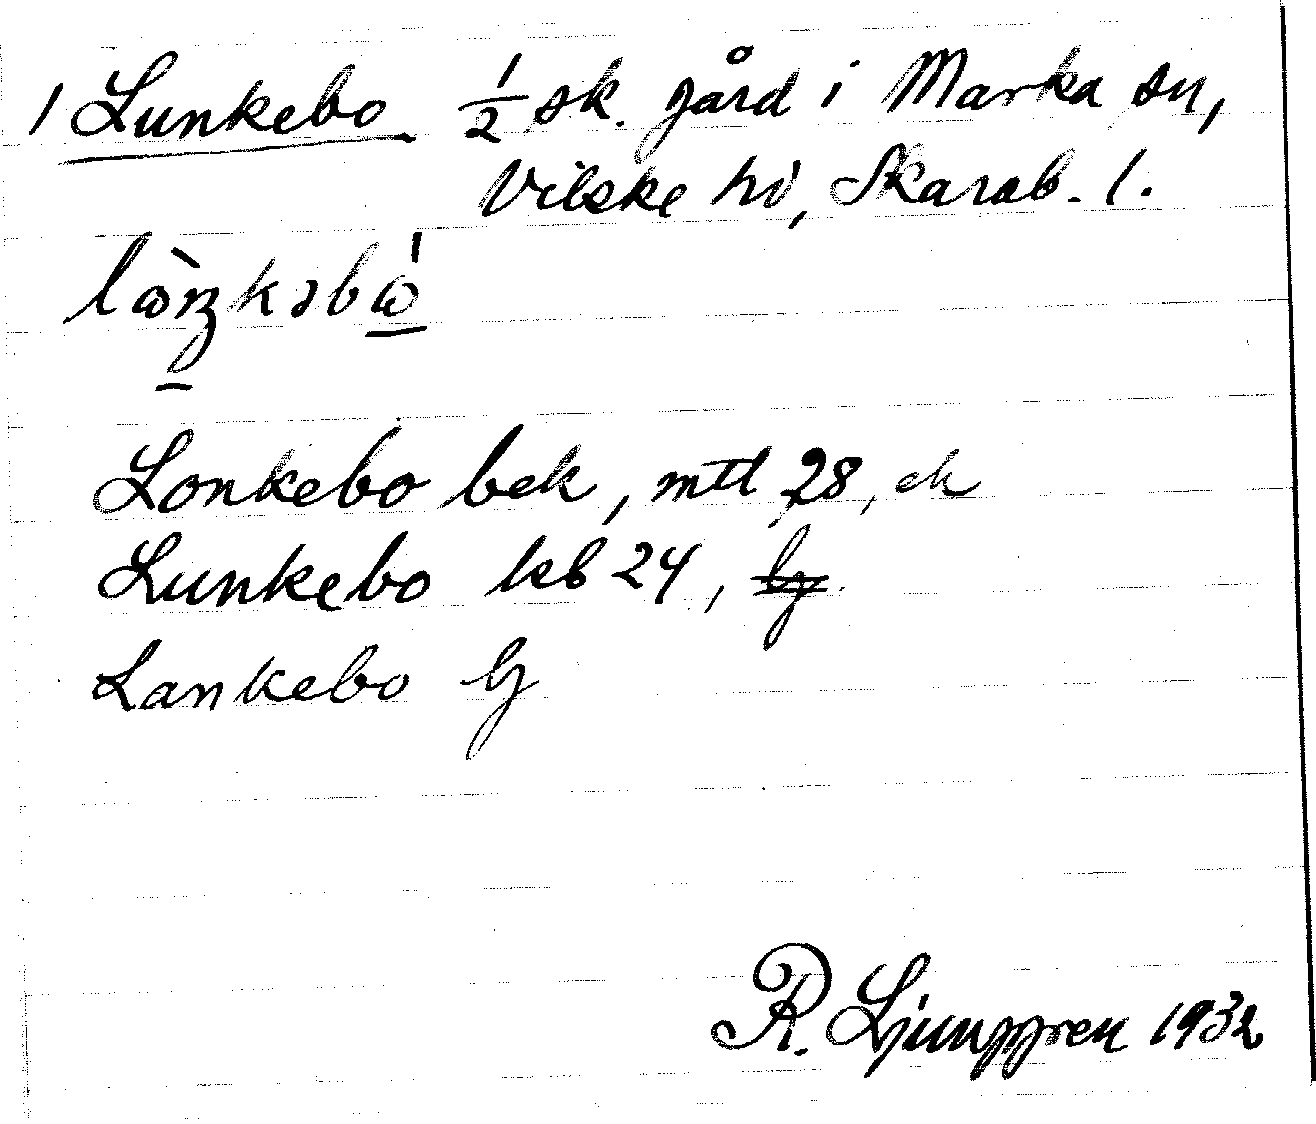 1 Lunkebo ½ sk. gård i Marka sn,
Vilske hd, Skarab. l.
Lonkebo bek, mtl 28, ek
Lunkebo kb 24,
Lankebo lj
R. Ljunggren 1932